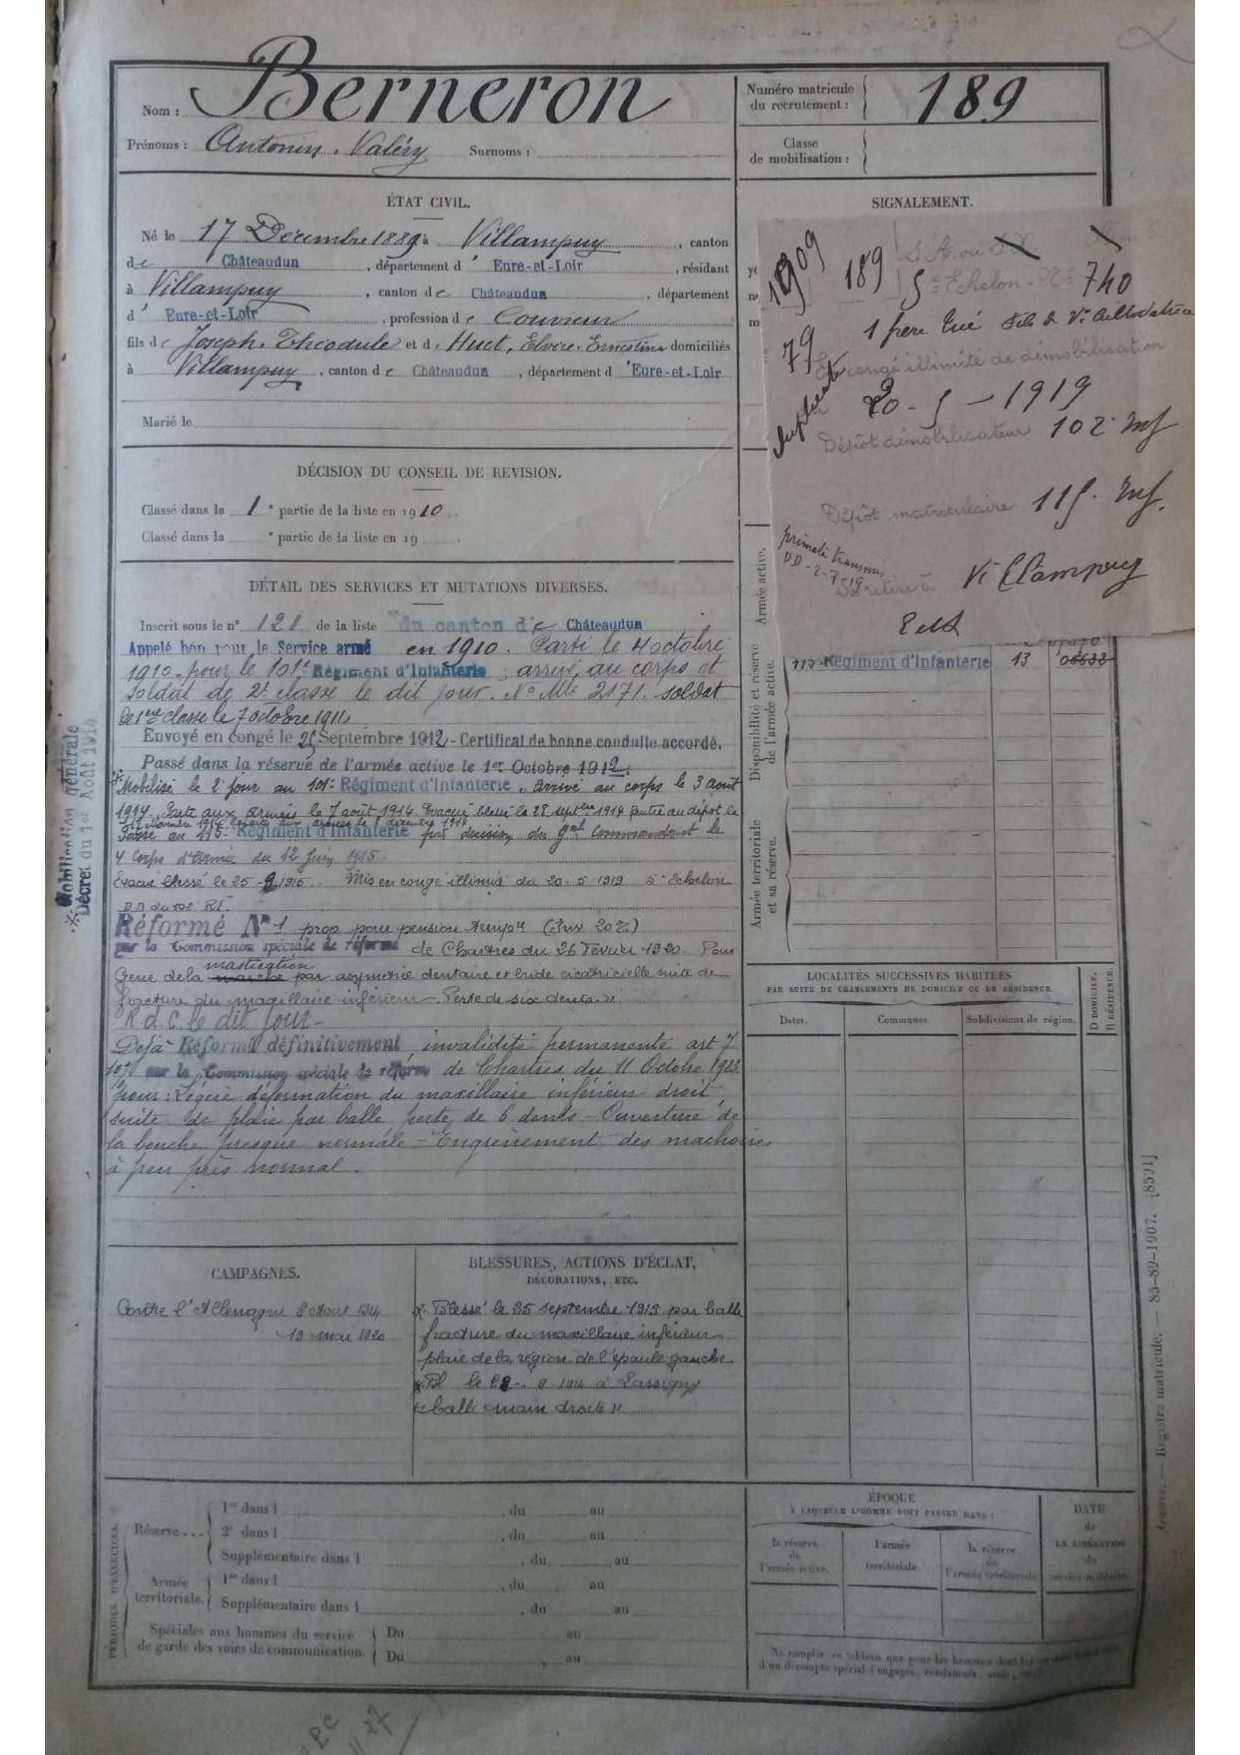 Nom : Berneron
Prénoms : Antonin, Valéry Surnoms :
Numéro matricule du recrutement : 189
Classe de mobilisation :
ÉTAT CIVIL.
Né le 17 Décembre 1889 à Villampuy, canton
de Châteaudun, département d' Eure-et-Loir, résidant
à Villampuy, canton de Châteaudun, département
d' Eure-et-Loir, profession de Couvreur
fils de Joseph, Théodule et de Huet, Elvire, Ernestine domiciliés
à Villampuy, canton de Châteaudun, département d'Eure-et-Loir
Marié le
DÉCISION DU CONSEIL DE REVISION.
Classé dans la 1e partie de la liste en 1910.
Classé dans la e partie de la liste en 19 .
DÉTAIL DES SERVICES ET MUTATIONS DIVERSES.
Inscrit sous le n° 121 de la liste du canton de Châteaudun
Appelé bon pour le Service armé en 1910. Parti le 4 octobre
1910 pour le 101e Régiment d'Infanterie, arrivé au corps et
soldat de 2e classe le dit jour. No Mle 2171. soldat
de 1ère classe le 7 octobre 1911.
Envoyé en congé le 25 Septembre 1912 - Certificat de bonne conduite accordé.
Passé dans la réserve de l'armée active le 1er Octobre 1912.
Mobilisation générale
Décret du 1er Août 1914
Mobilisé le 2e jour au 101e Régiment d'Infanterie, Arrivé au corps le 3 août
1914. Parti aux armées le 7 août 1914. Evacué blessé le 28 septbre 1914 Rentré au dépôt le
Passé au 115e Régiment d'Infanterie par décision du Gal Commandant le
4 Corps d'Armée du 12 juin 1915.
Evacué blessé le 25-9-1915. Mis en congé illimité du 20.5 1919 5e Echelon
D.D du 102 R.I.
Réformé No 1 prop pour pension tempre (Inv 20%)
par la Commission spéciale de réforme de Chartres du 26 Février 1920. Pour
Gene de la marche mastication par asymétrie dentaire et bride cicatricielle suite de
fracture du maxillaire inférieur. Perte de six dents.
R.d.C. le dit jour.
Déjà Réformé définitivement, invalidité permanente art 7
10% par la Commission spéciale de réforme de Chartres du 11 Octobre 1923
pour : Légère déformation du maxillaire inférieur droit
suite de plaie par balle perte de 6 dents - Ouverture de
la bouche presque normale - Engrènement des machoires
à peu près normal.
CAMPAGNES.
Contre l'Allemagne 3 Aout 1914
19 mai 1920
BLESSURES, ACTIONS D'ÉCLAT,
DÉCORATIONS, ETC.
Blessé le 25 septembre 1915 par balle
fracture du maxillaire inférieur
plaie de la région de l'épaule gauche
Bl le 28-9 1914 à Lassigny
balle main droite
SIGNALEMENT.
1909 189
5e Echelon No 740
79 1 frère tué
En congé illimité de démobilisation
duplicata
20-5-1919
Dépôt démobilisateur 102e Inf
Dépôt matriculaire 115e Inf.
primata transmis
DD-2-7-19
Se retire à Villampuy
Armée active.
Disponibilité et réserve de l'armée active.
Armée territoriale et sa réserve.
Régiment d'Infanterie 13
LOCALITÉS SUCCESSIVES HABITÉES
PAR SUITE DE CHANGEMENTS DE DOMICILE OU DE RÉSIDENCE.
Dates. Communes. Subdivisions de région. D DOMICILE. R RÉSIDENCE.
PÉRIODES D'EXERCICES.
Réserve... 1re dans l , du au
2e dans l , du au
Supplémentaire dans l , du au
Armée territoriale. 1re dans l , du au
Supplémentaire dans l , du au
Spéciales aux hommes du service de garde des voies de communication. Du au
Du , au
ÉPOQUE
À LAQUELLE L'HOMME DOIT PASSER DANS :
la réserve de l'armée active. l'armée territoriale. la réserve de l'armée territoriale.
DATE de LA LIBÉRATION du service militaire.
Registre matricule. — 85-89-1907. [8591]